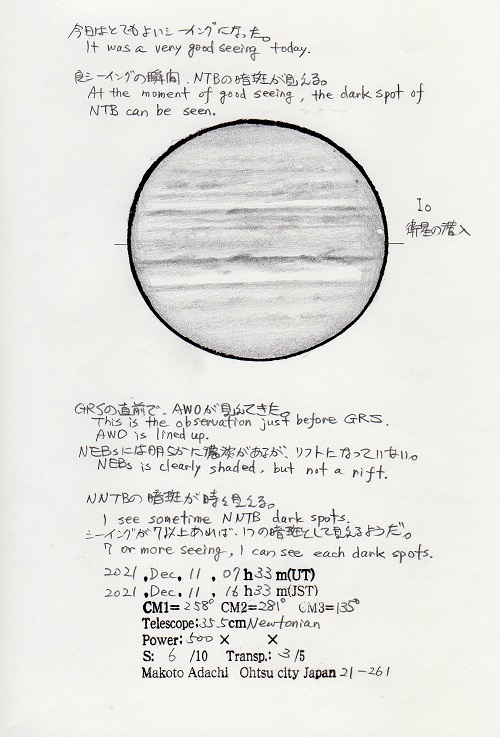 今日はとてもよいシーイングになった。
It was a very good seeing today.
良シーイングの瞬間、NTBの暗斑が見える。
At the moment of good seeing, the dark spot of
NTB can be seen.
Io
衛星の潜入
GRSの直前で、AWOが見えてきた。
This is the observation just before GRS.
AWO is lined up.
NEBsには明らかに濃淡があるが、リフトになっていない。
NEBs is clearly shaded, but not a rift.
NNTBの暗斑が時々見える。
I see sometime NNTB dark spots.
シーイングが7以上あれば、1つの暗斑として見えるようだ。
7 or more seeing, I can see each dark spots.
2021, Dec, 11, 07 h 33 m(UT)
2021, Dec, 11, 16 h 33 m(JST)
CM1= 258° CM2= 281° CM3= 135°
Telescope: 35.5cm Newtonian
Power: 500 × ×
S: 6 /10 Transp.: 3 /5
Makoto Adachi Ohtsu city Japan 21-261